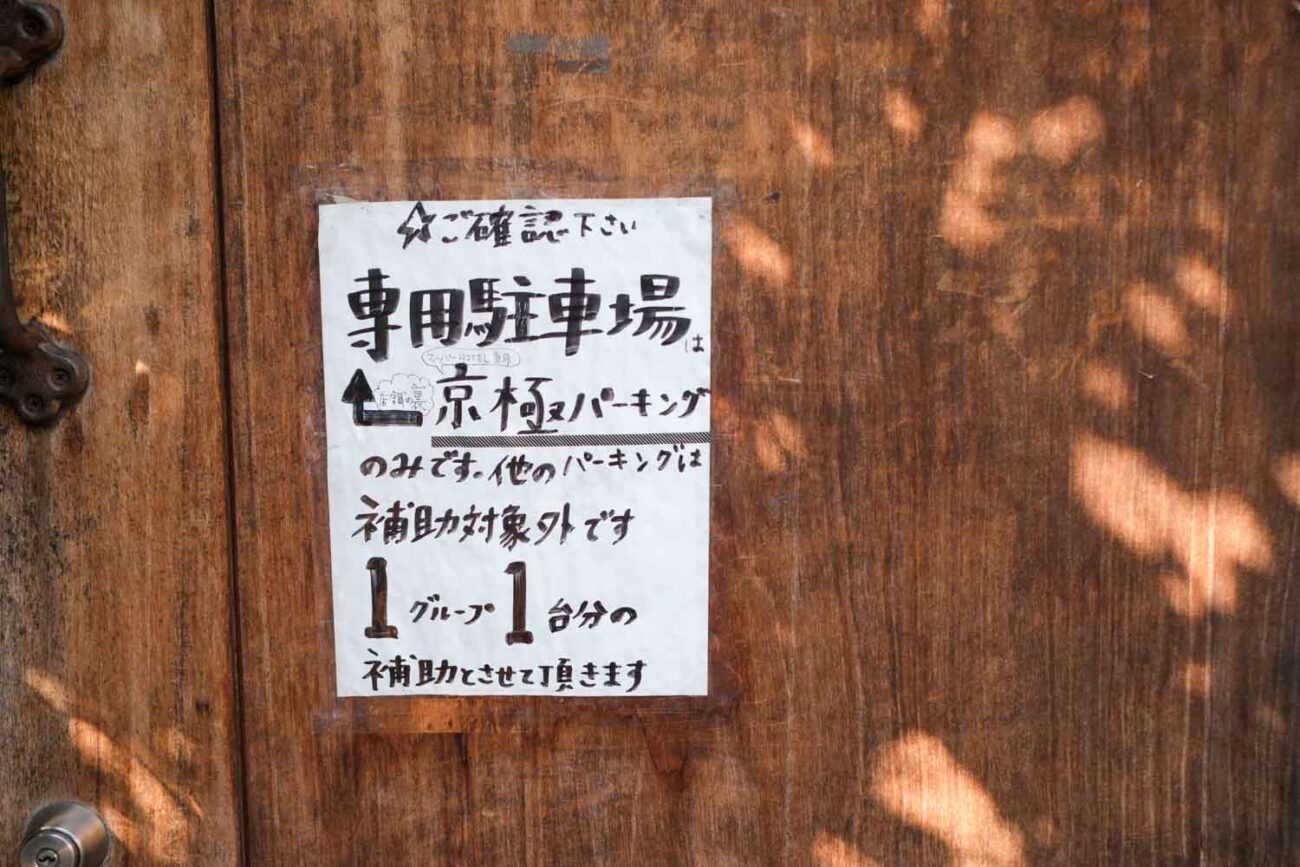 ☆ご確認下さい
専用駐車場は
スーパーHOTEL 兼用
店舗の裏
京極パーキング
のみです。他のパーキングは
補助対象外です
1グループ1台分の
補助とさせて頂きます